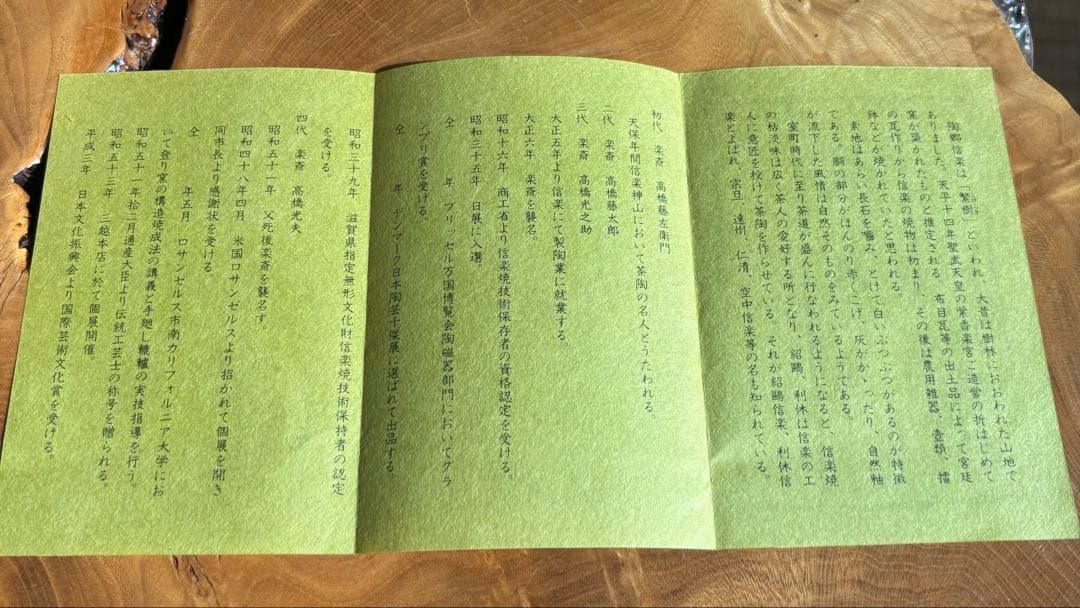 陶郷信楽は、繁樹、といわれ、大昔は樹林におおわれた山地で
ありました。天平十四年聖武天皇の紫香楽宮ご造営の折はじめて
窯が築かれたものと推定される。布目瓦等の出土品によって宮廷
の瓦作りから信楽の焼物は初まり、その後は農用雑器、壺類、擂
鉢などが焼かれていたと思われる。
素地はあらい長石を噛み、とけて白いぶつぶつがあるのが特徴
である。胴の部分がほんのり赤くこげ、灰がかゝったり、自然釉
が流下した風情は自然そのものをみているようである。
室町時代に至り茶道が盛んに行なわれるようになると、信楽焼
の枯淡味は広く茶人の愛好する所となり、紹鴎、利休は信楽の工
人に意匠を授けて茶陶を作らせている。それが紹鴎信楽、利休信
楽とよばれ、宗旦、遠州、仁清、空中信楽等の名も知られている。
初代 楽斎 高橋藤左衛門
天保年間信楽神山において茶陶の名人とうたわれる。
二代 楽斎 高橋藤太郎
三代 楽斎 高橋光之助
大正五年より信楽にて製陶業に就業する。
大正六年 楽斎を襲名。
昭和十六年 商工省より信楽焼技術保存者の資格認定を受ける。
昭和三十五年 日展に入選。
仝 年 ブリッセル万国博覧会陶磁器部門においてグラ
ンプリ賞を受ける。
仝 年 デンマーク日本陶芸十傑展に選ばれて出品する。
昭和三十九年 滋賀県指定無形文化財信楽焼技術保持者の認定
を受ける。
四代 楽斎 高橋光夫
昭和五十一年 父死後楽斎を襲名す。
昭和四十八年四月 米国ロサンゼルスより招かれて個展を開き
同市長より感謝状を受ける
仝 年五月 ロサンゼルス市南カリフォルニア大学にお
いて登り窯の構造焼成法の講義と手廻し轆轤の実技指導を行う。
昭和五十一年拾二月通産大臣より伝統工芸士の称号を贈られる。
昭和五十三年 三越本店に於て個展開催。
平成三年 日本文化振興会より国際芸術文化賞を受ける。